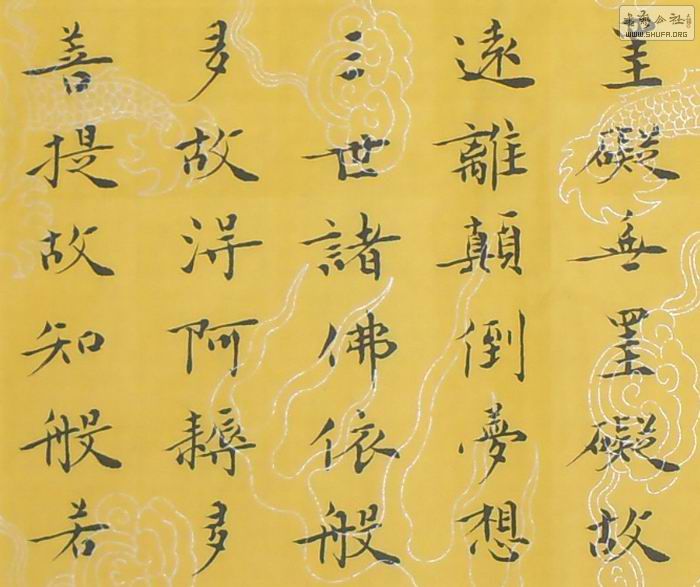 罣礙無罣礙故
遠離顛倒夢想
三世諸佛依般
多故得阿耨多
菩提故知般若
WWW.SHUFA.ORG